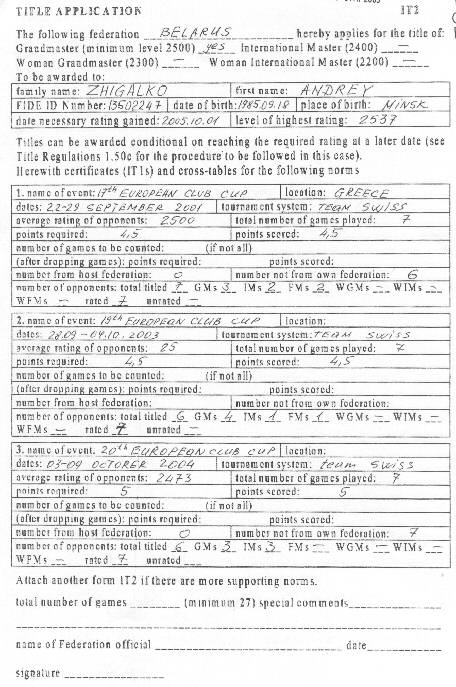 TITLE APPLICATION IT2
The following federation BELARUS hereby applies for the title of:
Grandmaster (minimum level 2500) yes International Master (2400) —
Woman Grandmaster (2300) — Woman International Master (2200) —
To be awarded to:
family name: ZHIGALKO first name: ANDREY
FIDE ID Number: 13502247 date of birth: 1985.09.18 place of birth: MINSK
date necessary rating gained: 2005.10.01 level of highest rating: 2537
Titles can be awarded conditional on reaching the required rating at a later date (see
Title Regulations 1.50c for the procedure to be followed in this case).
Herewith certificates (IT1s) and cross-tables for the following norms
1. name of event: 17th EUROPEAN CLUB CUP location: GREECE
dates: 22-29 SEPTEMBER 2001 tournament system: TEAM SWISS
average rating of opponents: 2500 total number of games played: 7
points required: 4,5 points scored: 4,5
number of games to be counted: (if not all)
(after dropping games): points required: points scored:
number from host federation: 0 number not from own federation: 6
number of opponents: total titled 7 GMs 3 IMs 2 FMs 2 WGMs — WIMs —
WFMs — rated 7 unrated —
2. name of event: 19th EUROPEAN CLUB CUP location:
dates: 28.09 - 04.10.2003 tournament system: TEAM SWISS
average rating of opponents: 25 total number of games played: 7
points required: 4,5 points scored: 4,5
number of games to be counted: (if not all)
(after dropping games): points required: points scored:
number from host federation: number not from own federation:
number of opponents: total titled 6 GMs 4 IMs 1 FMs 1 WGMs — WIMs —
WFMs — rated 7 unrated —
3. name of event: 20th EUROPEAN CLUB CUP location:
dates: 03-09 OCTOBER 2004 tournament system: team swiss
average rating of opponents: 2473 total number of games played: 7
points required: 5 points scored: 5
number of games to be counted: (if not all)
(after dropping games): points required: points scored:
number from host federation: 0 number not from own federation: 7
number of opponents: total titled 6 GMs 3 IMs 3 FMs — WGMs — WIMs —
WFMs — rated 7 unrated
Attach another form IT2 if there are more supporting norms.
total number of games ________ (minimum 27) special comments________
name of Federation official ________ date________
signature ________